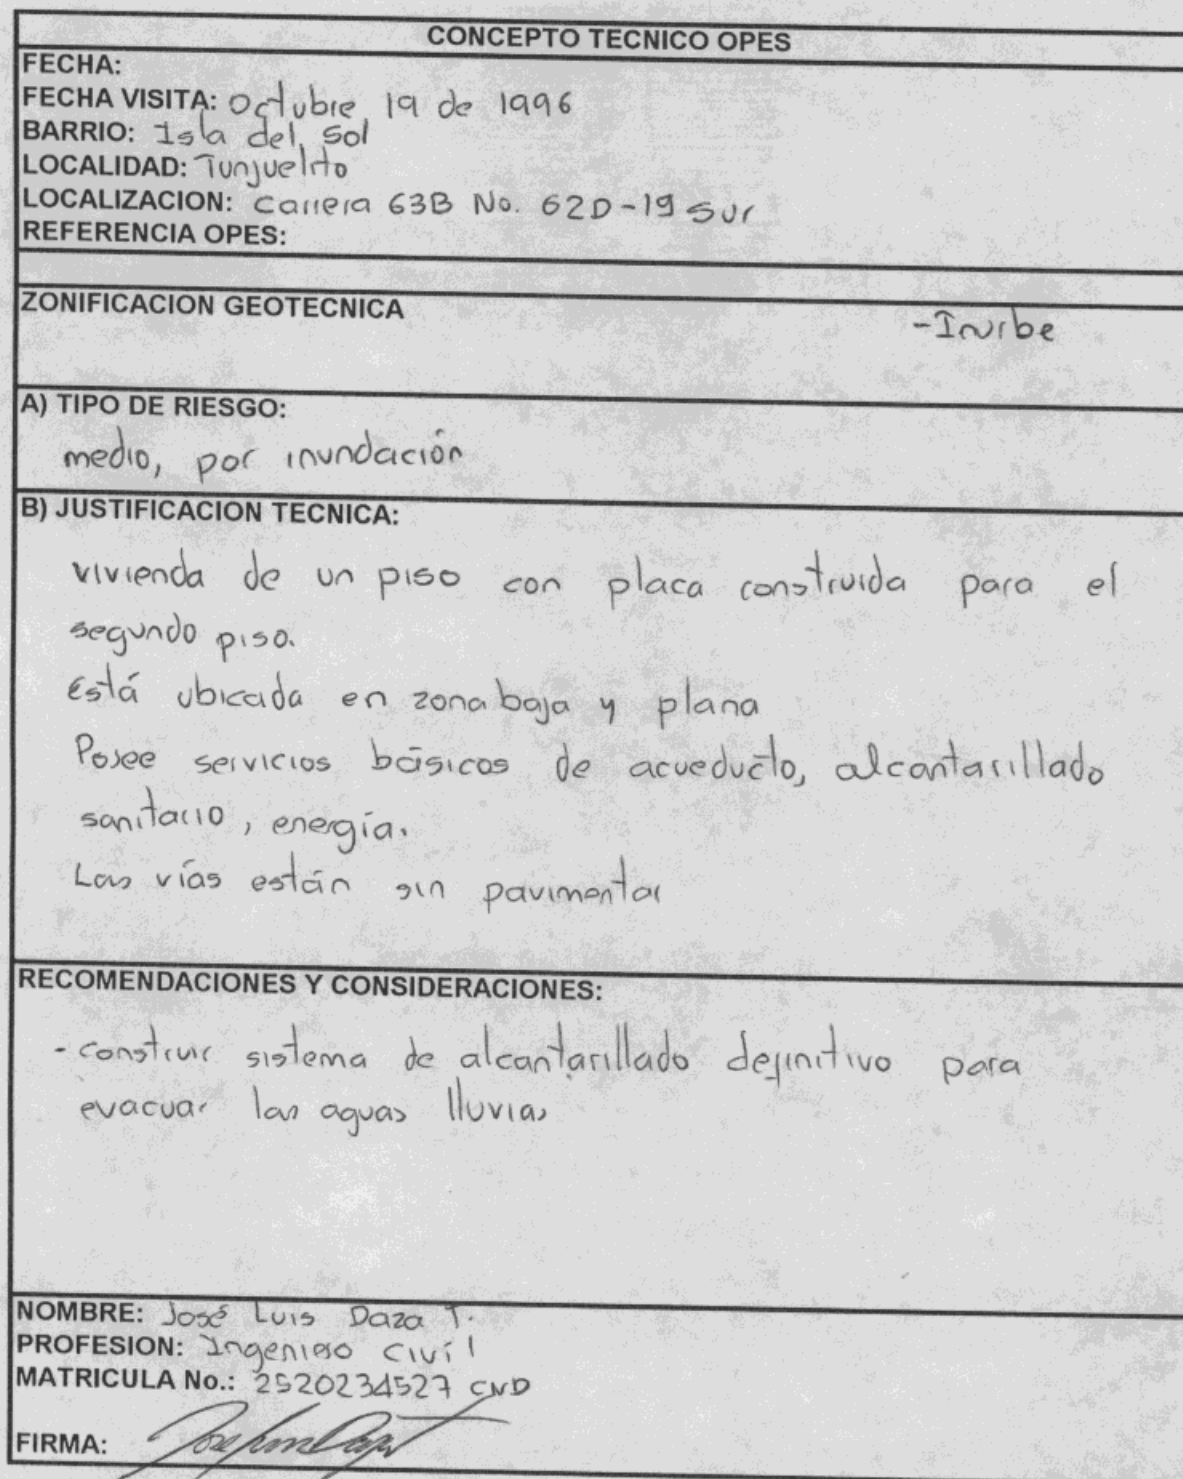 CONCEPTO TECNICO OPES
FECHA:
FECHA VISITA: Octubre 19 de 1996
BARRIO: Isla del Sol
LOCALIDAD: Tunjuelito
LOCALIZACION: Carrera 63B No. 62D-19 Sur
REFERENCIA OPES:
ZONIFICACION GEOTECNICA
-Inurbe
A) TIPO DE RIESGO:
medio, por inundación
B) JUSTIFICACION TECNICA:
vivienda de un piso con placa construida para el
segundo piso.
Está ubicada en zona baja y plana
Posee servicios básicos de acueducto, alcantarillado
sanitario, energía.
Las vías están sin pavimentar
RECOMENDACIONES Y CONSIDERACIONES:
- construir sistema de alcantarillado definitivo para
evacuar las aguas lluvias
NOMBRE: José Luis Daza T.
PROFESION: Ingeniero Civíl
MATRICULA No.: 2520234527 CND
FIRMA: